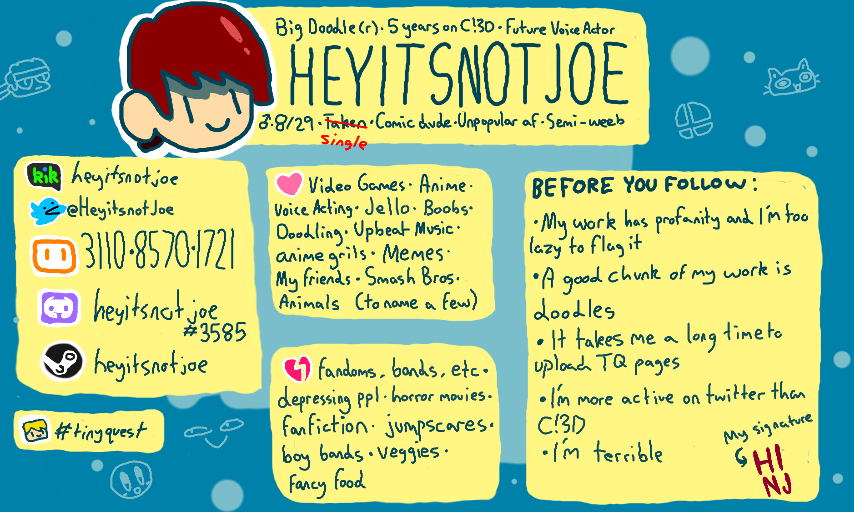 Big Doodle(r) · 5 years on C!3D · Future Voice Actor
HEYITSNOTJOE
♂ · 8/29 · Taken · Comic dude · Unpopular af · Semi-weeb
Single
kik heyitsnotjoe
@HeyitsnotJoe
3110·8570·1721
heyitsnot joe
#3585
heyitsnotjoe
#tinyquest
Video Games · Anime ·
Voice Acting · Jello · Boobs ·
Doodling · Upbeat Music ·
anime grils · Memes ·
My friends · Smash Bros ·
Animals (to name a few)
fandoms, bands, etc ·
depressing ppl · horror movies ·
fanfiction · jumpscares ·
boy bands · veggies ·
fancy food
BEFORE YOU FOLLOW:
· My work has profanity and I'm too
lazy to flag it
· A good chunk of my work is
doodles
· It takes me a long time to
upload TQ pages
· I'm more active on twitter than
C!3D
· I'm terrible
My signature
HI
NJ